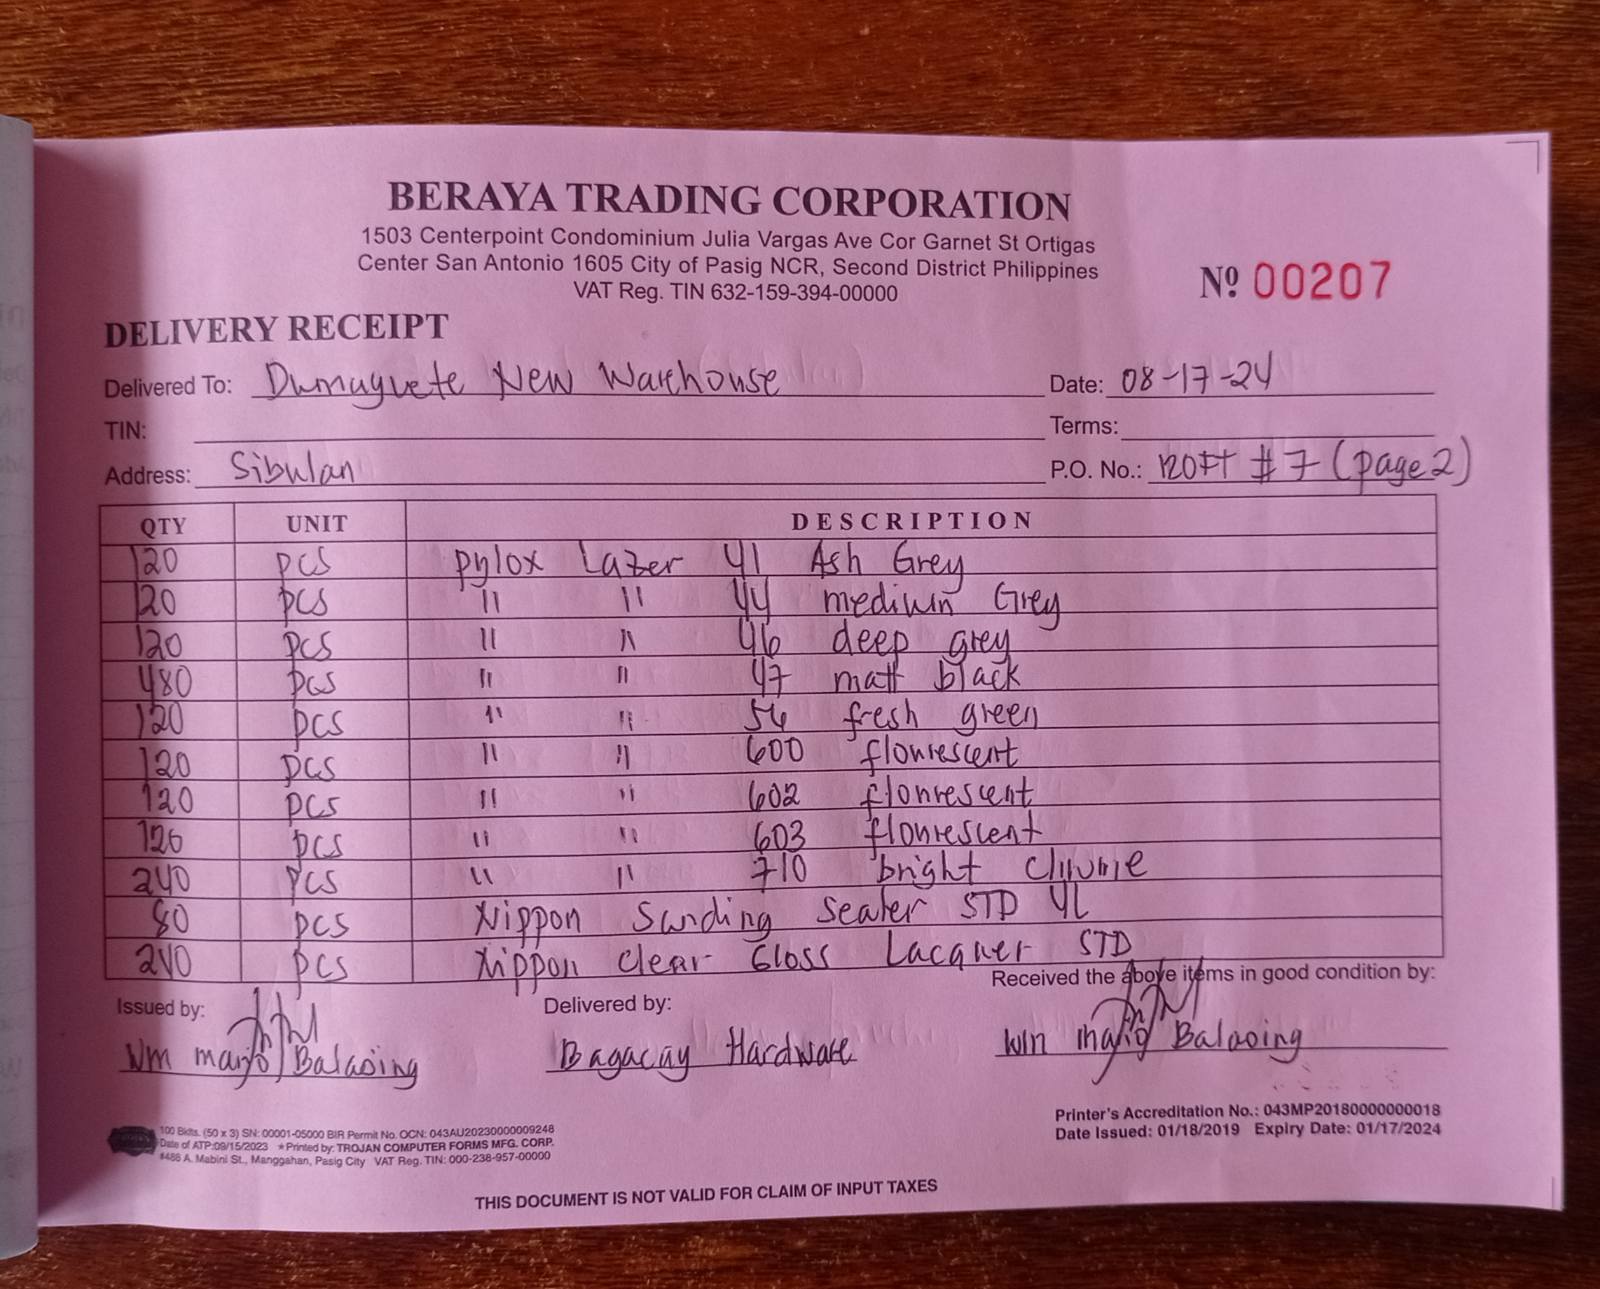 BERAYA TRADING CORPORATION
1503 Centerpoint Condominium Julia Vargas Ave Cor Garnet St Ortigas
Center San Antonio 1605 City of Pasig NCR, Second District Philippines
VAT Reg. TIN 632-159-394-00000
Nº 00207
DELIVERY RECEIPT
Delivered To: Dumaguete New Warehouse Date: 08-17-24
TIN: Terms:
Address: Sibulan P.O. No.: 120Ft #7 (page 2)
QTY UNIT DESCRIPTION
120 pcs pylox Lazer 41 Ash Grey
120 pcs " " 44 medium Grey
120 pcs " " 46 deep grey
480 pcs " " 47 matt black
120 pcs " " 56 fresh green
120 pcs " " 600 flourescent
120 pcs " " 602 flourescent
120 pcs " " 603 flourescent
240 pcs " " 710 bright chrome
80 pcs Nippon Sanding Sealer STD 4L
240 pcs Nippon Clear Gloss Lacquer STD
Received the above items in good condition by:
Issued by: Delivered by:
Wm marjo Balaoing Bagacay Hardware Wm marjo Balaoing
100 Bklts. (50 x 3) SN: 00001-05000 BIR Permit No. OCN: 043AU20230000009248
Date of ATP:09/15/2023 *Printed by: TROJAN COMPUTER FORMS MFG. CORP.
#488 A. Mabini St., Manggahan, Pasig City VAT Reg. TIN: 000-238-957-00000
Printer's Accreditation No.: 043MP20180000000018
Date Issued: 01/18/2019 Expiry Date: 01/17/2024
THIS DOCUMENT IS NOT VALID FOR CLAIM OF INPUT TAXES